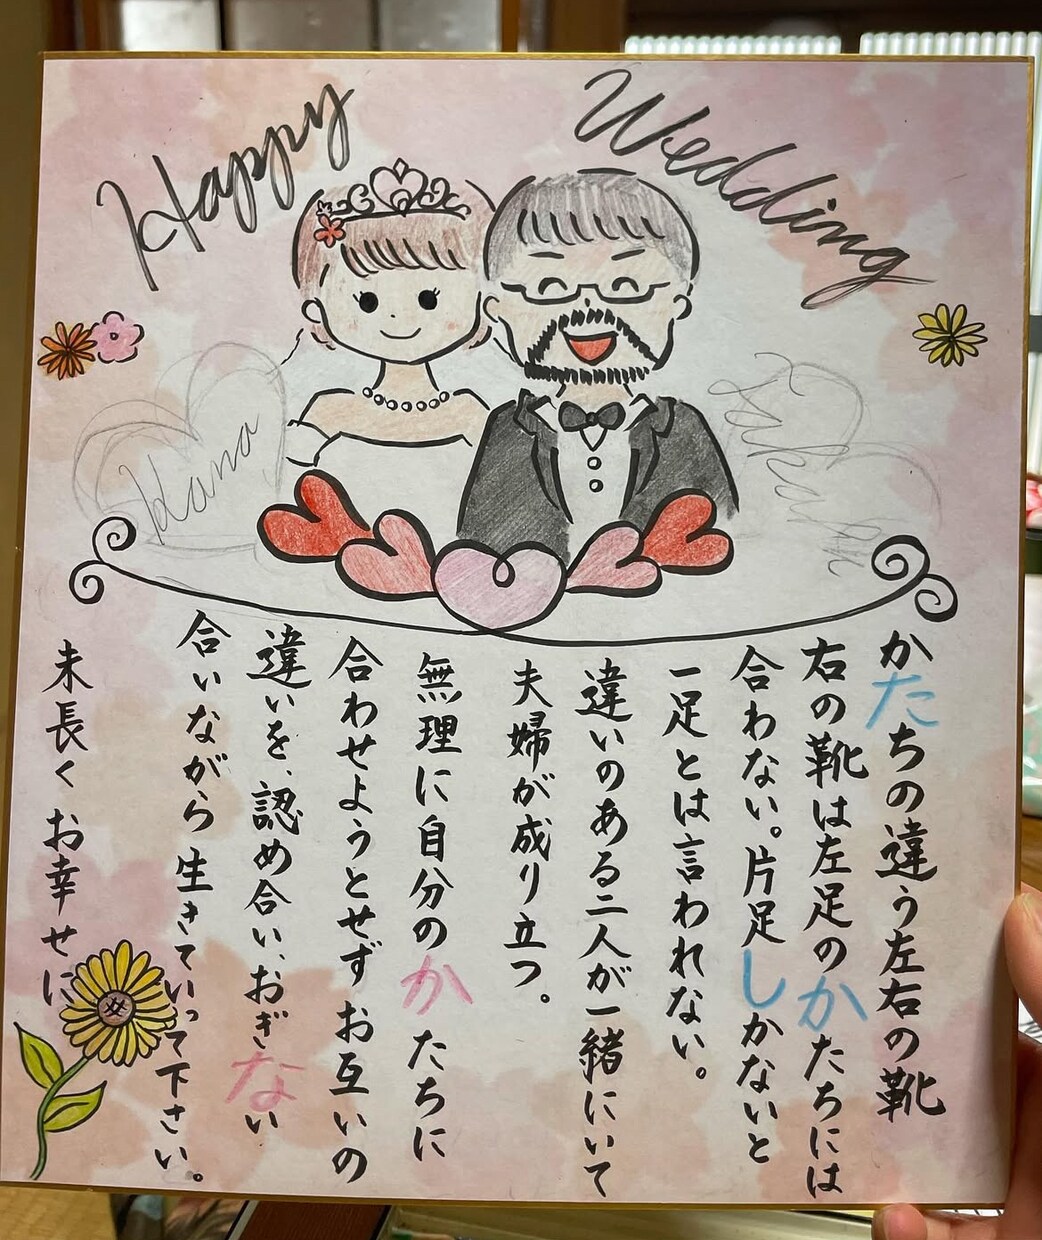 Happy Wedding
Kana
かたちの違う左右の靴
右の靴は左足のかたちには
合わない。片足しかないと
一足とは言われない。
違いのある二人が一緒にいて
夫婦が成り立つ。
無理に自分のかたちに
合わせようとせずお互いの
違いを、認め合い、おぎない
合いながら生きていって下さい。
末長くお幸せに